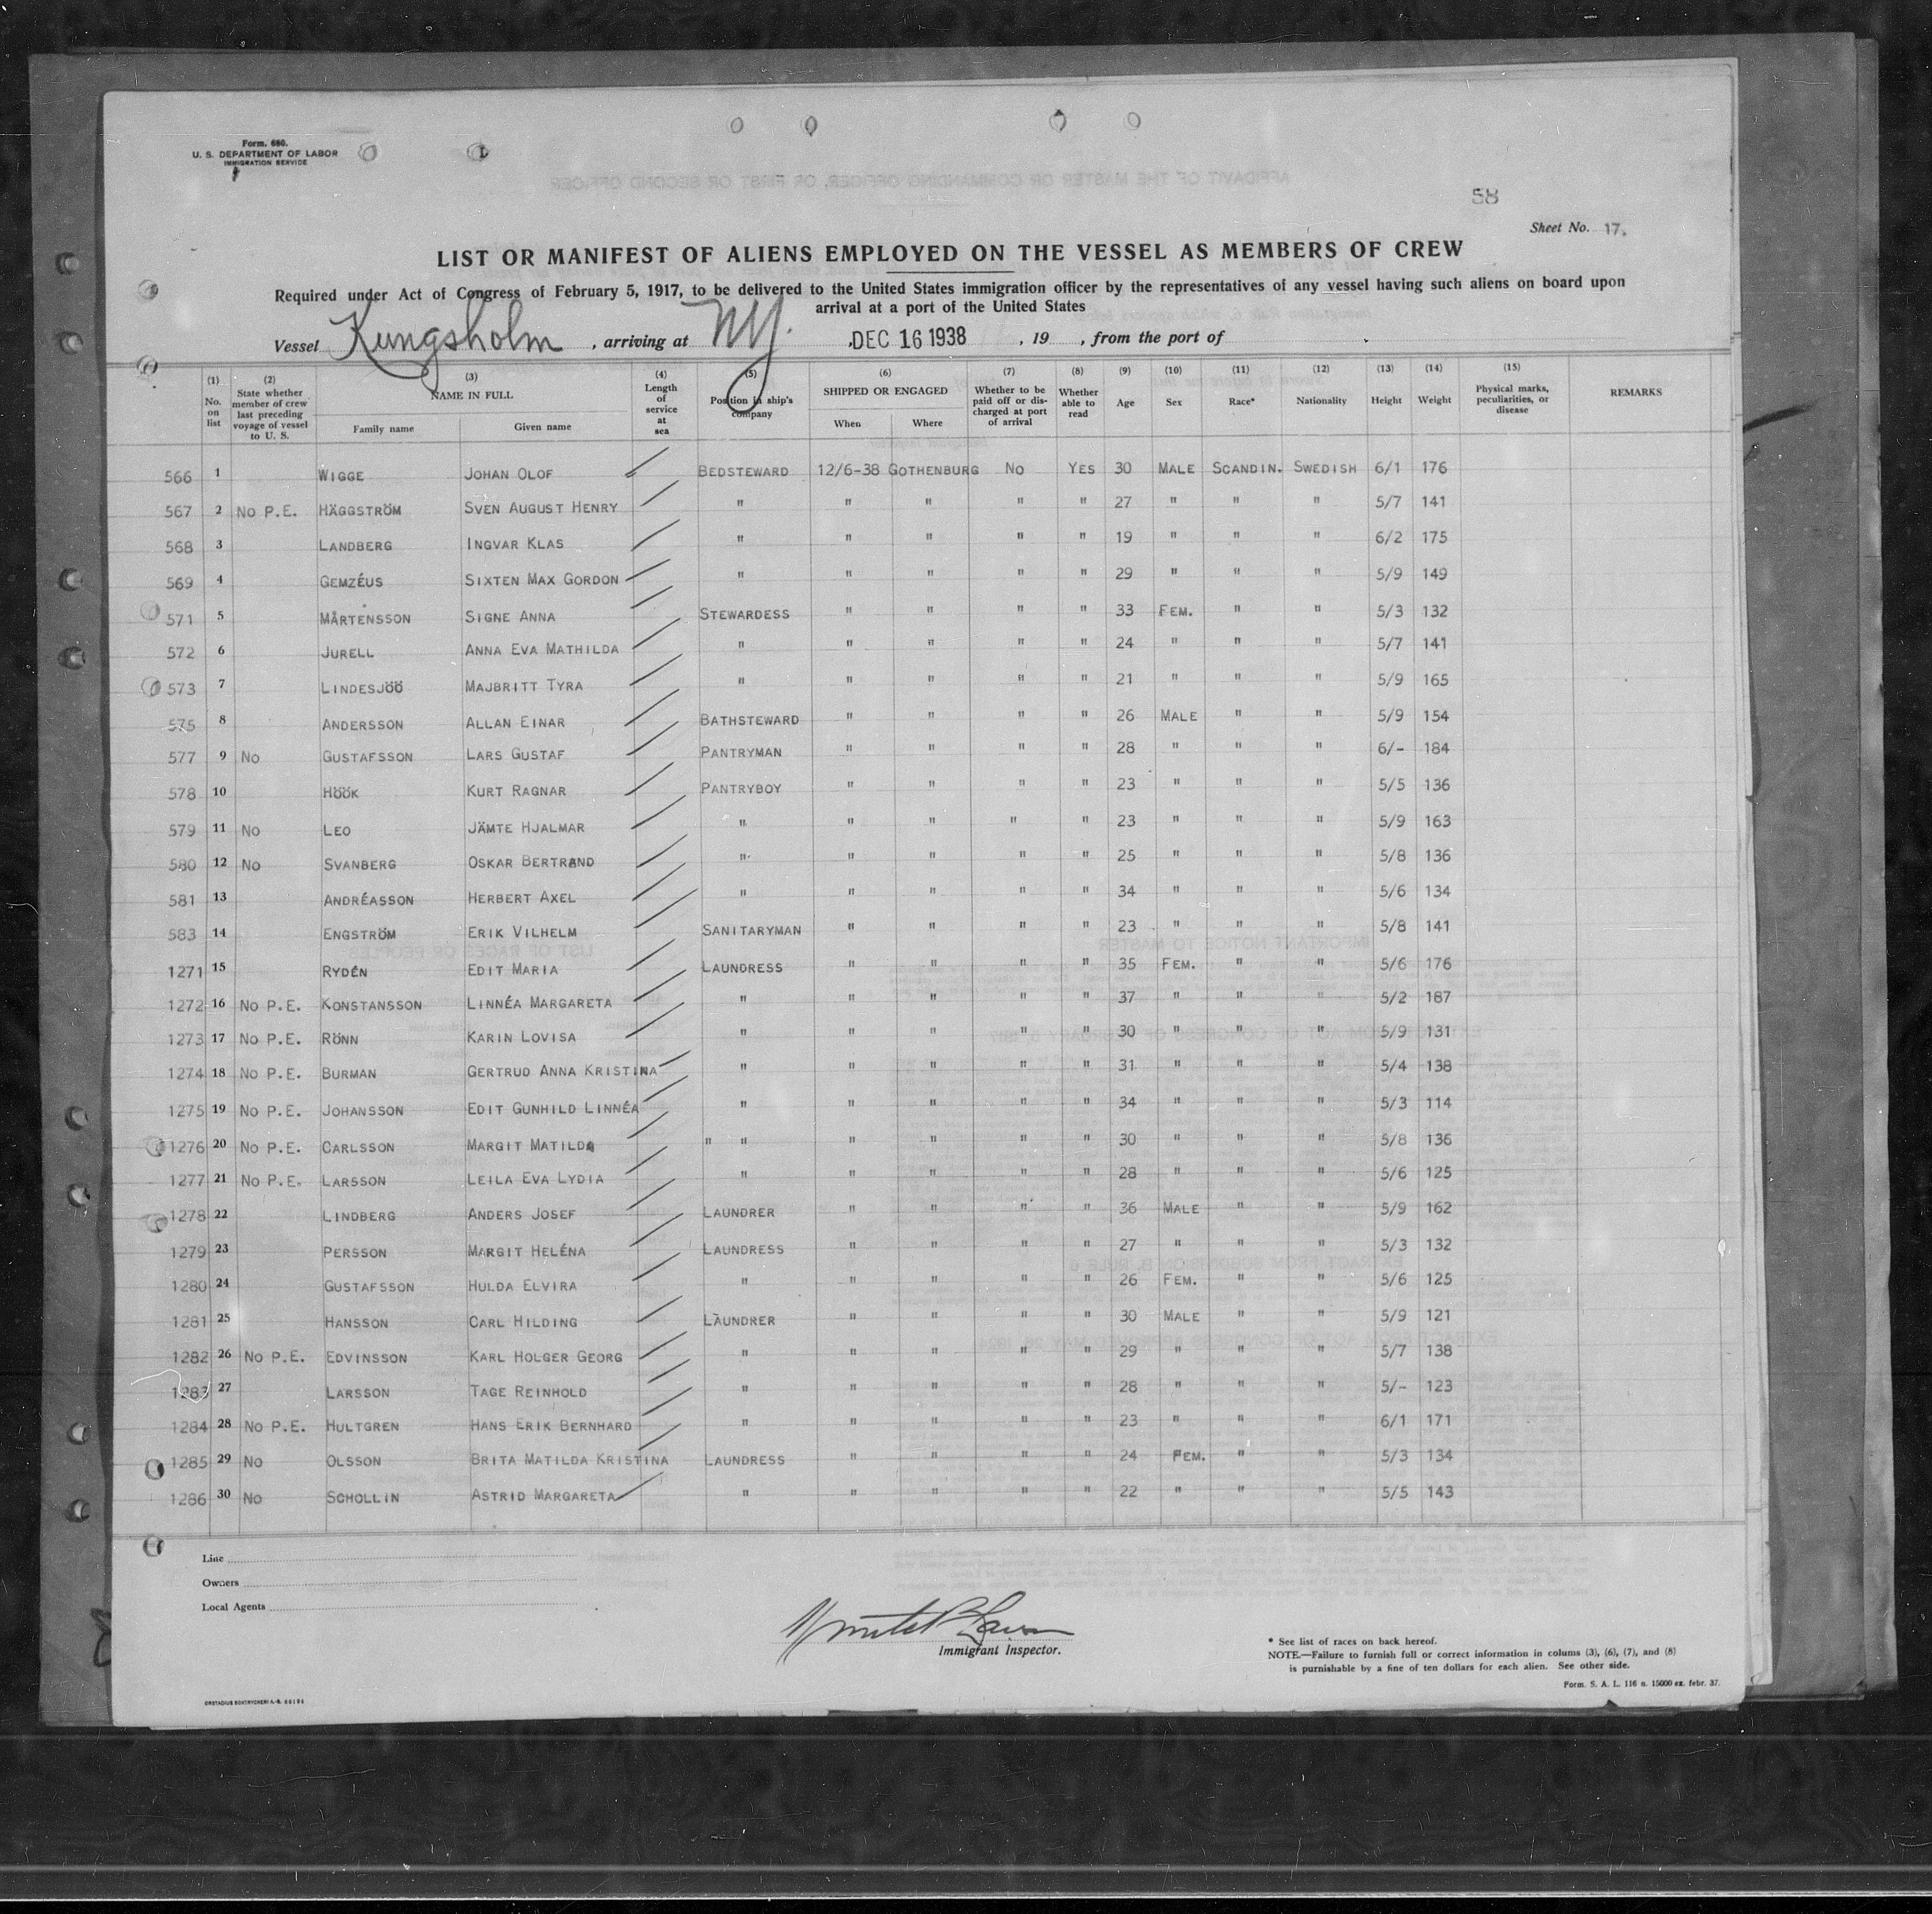 Form. 680.
U. S. DEPARTMENT OF LABOR
IMMIGRATION SERVICE
58
Sheet No. 17.
LIST OR MANIFEST OF ALIENS EMPLOYED ON THE VESSEL AS MEMBERS OF CREW
Required under Act of Congress of February 5, 1917, to be delivered to the United States immigration officer by the representatives of any vessel having such aliens on board upon
arrival at a port of the United States
Vessel Kungsholm , arriving at NY. , DEC 16 1938 , 19 , from the port of .
(1) No. on list (2) State whether member of crew last preceding voyage of vessel to U. S. (3) NAME IN FULL Family name Given name (4) Length of service at sea (5) Position in ship's company (6) SHIPPED OR ENGAGED When Where (7) Whether to be paid off or discharged at port of arrival (8) Whether able to read (9) Age (10) Sex (11) Race* (12) Nationality (13) Height (14) Weight (15) Physical marks, peculiarities, or disease REMARKS
566 1 WIGGE JOHAN OLOF BEDSTEWARD 12/6-38 GOTHENBURG NO YES 30 MALE SCANDIN. SWEDISH 6/1 176
567 2 NO P.E. HÄGGSTRÖM SVEN AUGUST HENRY " " " " " 27 " " " 5/7 141
568 3 LANDBERG INGVAR KLAS " " " " " 19 " " " 6/2 175
569 4 GEMZÉUS SIXTEN MAX GORDON " " " " " 29 " " " 5/9 149
571 5 MÅRTENSSON SIGNE ANNA STEWARDESS " " " " 33 FEM. " " 5/3 132
572 6 JURELL ANNA EVA MATHILDA " " " " " 24 " " " 5/7 141
573 7 LINDESJÖÖ MAJBRITT TYRA " " " " " 21 " " " 5/9 165
575 8 ANDERSSON ALLAN EINAR BATHSTEWARD " " " " 26 MALE " " 5/9 154
577 9 NO GUSTAFSSON LARS GUSTAF PANTRYMAN " " " " 28 " " " 6/- 184
578 10 HÖÖK KURT RAGNAR PANTRYBOY " " " " 23 " " " 5/5 136
579 11 NO LEO JÄMTE HJALMAR " " " " " 23 " " " 5/9 163
580 12 NO SVANBERG OSKAR BERTRAND " " " " " 25 " " " 5/8 136
581 13 ANDRÉASSON HERBERT AXEL " " " " " 34 " " " 5/6 134
583 14 ENGSTRÖM ERIK VILHELM SANITARYMAN " " " " 23 " " " 5/8 141
1271 15 RYDÉN EDIT MARIA LAUNDRESS " " " " 35 FEM. " " 5/6 176
1272 16 NO P.E. KONSTANSSON LINNÉA MARGARETA " " " " " 37 " " " 5/2 187
1273 17 NO P.E. RÖNN KARIN LOVISA " " " " " 30 " " " 5/9 131
1274 18 NO P.E. BURMAN GERTRUD ANNA KRISTINA " " " " " 31 " " " 5/4 138
1275 19 NO P.E. JOHANSSON EDIT GUNHILD LINNÉA " " " " " 34 " " " 5/3 114
1276 20 NO P.E. CARLSSON MARGIT MATILDA " " " " " " 30 " " " 5/8 136
1277 21 NO P.E. LARSSON LEILA EVA LYDIA " " " " " 28 " " " 5/6 125
1278 22 LINDBERG ANDERS JOSEF LAUNDRER " " " " 36 MALE " " 5/9 162
1279 23 PERSSON MARGIT HELÉNA LAUNDRESS " " " " 27 " " " 5/3 132
1280 24 GUSTAFSSON HULDA ELVIRA " " " " " 26 FEM. " " 5/6 125
1281 25 HANSSON CARL HILDING LAUNDRER " " " " 30 MALE " " 5/9 121
1282 26 NO P.E. EDVINSSON KARL HOLGER GEORG " " " " " 29 " " " 5/7 138
1283 27 LARSSON TAGE REINHOLD " " " " " 28 " " " 5/- 123
1284 28 NO P.E. HULTGREN HANS ERIK BERNHARD " " " " " 23 " " " 6/1 171
1285 29 NO OLSSON BRITA MATILDA KRISTINA LAUNDRESS " " " " 24 FEM. " " 5/3 134
1286 30 NO SCHOLLIN ASTRID MARGARETA " " " " " 22 " " " 5/5 143
Line
Owners
Local Agents
Immigrant Inspector.
* See list of races on back hereof.
NOTE.—Failure to furnish full or correct information in colums (3), (6), (7), and (8)
is punishable by a fine of ten dollars for each alien. See other side.
Form. S. A. L. 116 n. 15000 ex. febr. 37.